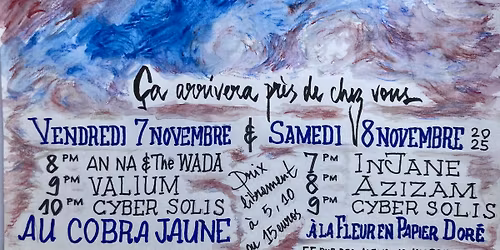 Ça arrivera près de chez vous
VENDREDI 7 NOVEMBRE & SAMEDI 8 NOVEMBRE 2025
8 PM AN NA & The WADA
9 PM VALIUM
10 PM CYBER SOLIS
AU COBRA JAUNE
Prix
librement
à 5, 10
ou 15 euros
7 PM INJANE
8 PM AZIZAM
9 PM CYBER SOLIS
À LA FLEUR EN PAPIER DORÉ